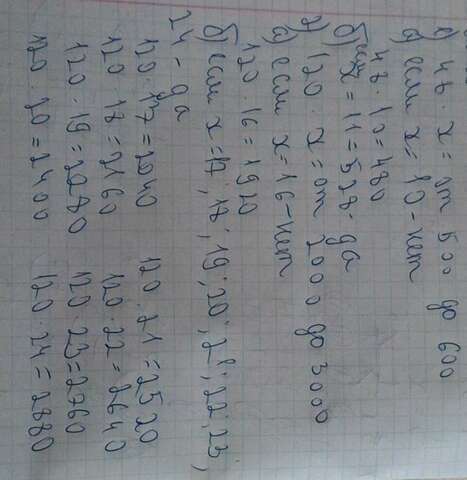 48 · x = от 500 до 600
а) если x = 10 - нет
48 · 10 = 480
б) если x = 11 = 528 - да
120 · x = от 2000 до 3000
а) если x = 16 - нет
120 · 16 = 1920
б) если x = 17; 18; 19; 20; 21; 22; 23;
24 - да
120 · 17 = 2040 120 · 21 = 2520
120 · 18 = 2160 120 · 22 = 2640
120 · 19 = 2280 120 · 23 = 2760
120 · 20 = 2400 120 · 24 = 2880